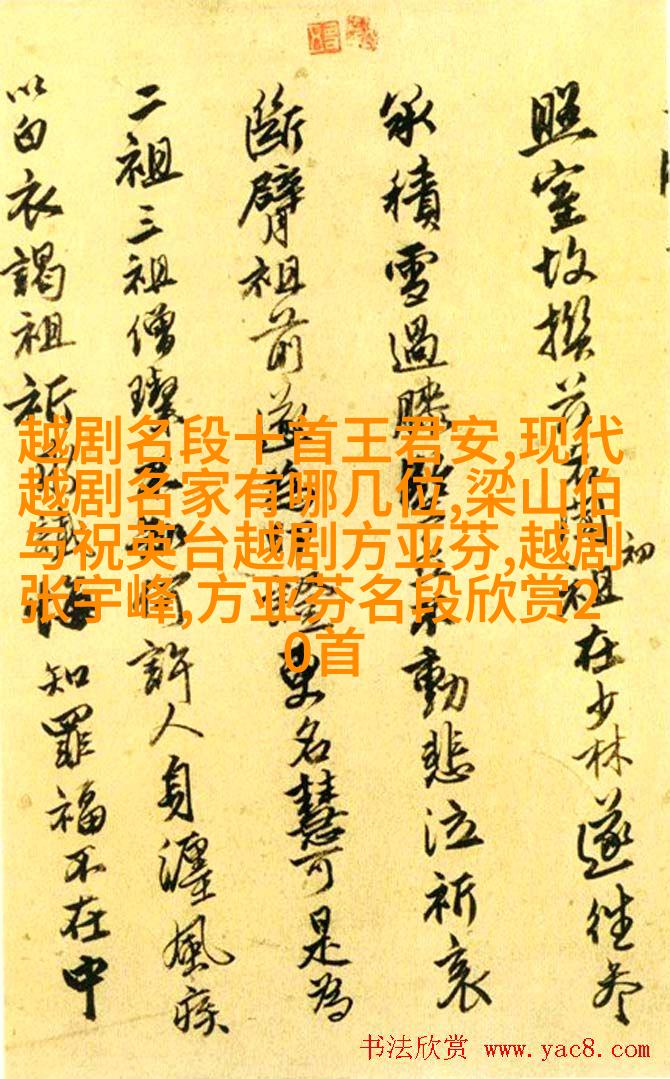 照室故撰初祖在少林遂往參
承積雪過膝動悲泣祈哀
斷臂祖前遂更名慧可是為
二祖三祖僧璨許人身纏風疾
以白衣謁祖祈知罪福不在中
越剧名段十首王君安,现代
越剧名家有哪几位,梁山伯
与祝英台越剧方亚芬,越剧
张宇峰,方亚芬名段欣赏2
0首
书法欣赏 www.yac8.com